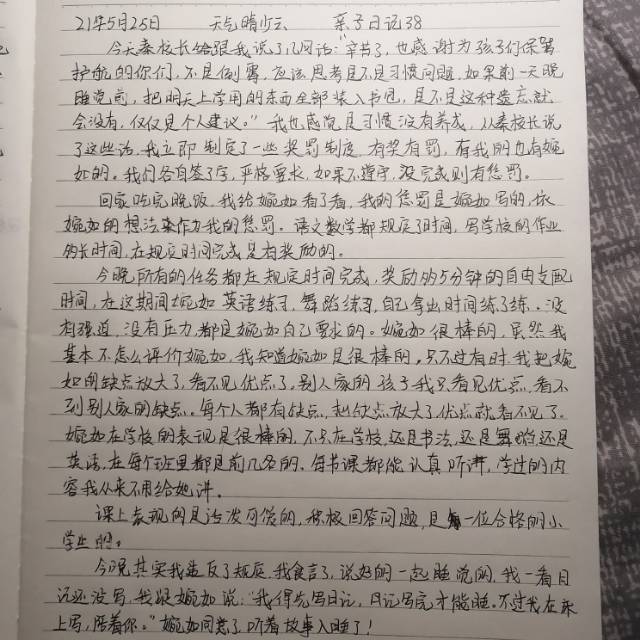 21年5月25日 天气晴少云 亲子日记38
今天秦校长给跟我说了几句话:"辛苦了,也感谢为孩子们保驾
护航的你们,不是倒霉,应该思考是不是习惯问题,如果前一天晚
睡觉前,把明天上学用的东西全部装入书包,是不是这种遗忘就
会没有,仅仅是个人建议。"我也感觉是习惯没有养成,从秦校长说
了这些话,我立即制定了一些奖罚制度,有奖有罚,有我的也有婉
如的。我们各自签了字,严格要求,如果不遵守,没完成则有惩罚。
回家吃完晚饭,我给婉如看了看,我的惩罚是婉如写的,依
婉如的想法来作为我的惩罚。语文数学都规定了时间,写学校的作业
多长时间,在规定时间完成是有奖励的。
今晚所有的任务都在规定时间完成,奖励多5分钟的自由支配
时间,在这期间婉如英语练习,舞蹈练习,自己拿出时间练了练。没
有强迫,没有压力都是婉如自己要求的。婉如很棒的,虽然我
基本不怎么评价婉如,我知道婉如是很棒的,只不过有时我把婉
如的缺点放大了,看不见优点了,别人家的孩子我只看见优点,看不
到别人家的缺点。每个人都有缺点,把缺点放大了优点就看不见了。
婉如在学校的表现是很棒的,不只在学校,还是书法,还是舞蹈还是
英语,在每个班里都是前几名的,每节课都能认真听讲,学过的内
容我从来不用给她讲。
课上表现的是活泼可爱的,积极回答问题,是一位合格的小
学生。
今晚其实我违反了规定,我食言了,说好的一起睡觉的,我一看日
记还没写,我跟婉如说:"我得先写日记,日记写完才能睡,不过我在床
上写,陪着你。"婉如同意了,听着故事入睡了!